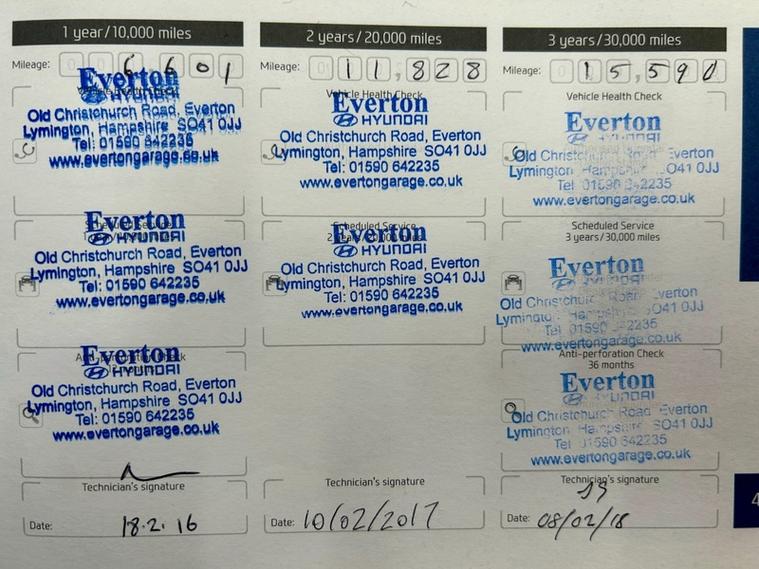 1 year/10,000 miles
Mileage: 6 6 0 1
Everton
HYUNDAI
Old Christchurch Road, Everton
Lymington, Hampshire SO41 0JJ
Tel: 01590 642235
www.evertongarage.co.uk
Everton
HYUNDAI
Old Christchurch Road, Everton
Lymington, Hampshire SO41 0JJ
Tel: 01590 642235
www.evertongarage.co.uk
Anti-perforation Check
Everton
HYUNDAI
Old Christchurch Road, Everton
Lymington, Hampshire SO41 0JJ
Tel: 01590 642235
www.evertongarage.co.uk
Technician's signature
Date: 18.2.16
2 years/20,000 miles
Mileage: 11,828
Vehicle Health Check
Everton
HYUNDAI
Old Christchurch Road, Everton
Lymington, Hampshire SO41 0JJ
Tel: 01590 642235
www.evertongarage.co.uk
Scheduled Service
Everton
HYUNDAI
Old Christchurch Road, Everton
Lymington, Hampshire SO41 0JJ
Tel: 01590 642235
www.evertongarage.co.uk
Technician's signature
Date: 10/02/2017
3 years/30,000 miles
Mileage: 15,590
Vehicle Health Check
Everton
HYUNDAI
Old Christchurch Road Everton
Lymington Hampshire SO41 0JJ
Tel 01590 642235
www.evertongarage.co.uk
Scheduled Service
3 years/30,000 miles
Everton
HYUNDAI
Old Christchurch Road Everton
Lymington Hampshire SO41 0JJ
Tel 01590 642235
www.evertongarage.co.uk
Anti-perforation Check
36 months
Everton
HYUNDAI
Old Christchurch Road Everton
Lymington Hampshire SO41 0JJ
Tel 01590 642235
www.evertongarage.co.uk
Technician's signature
Date: 08/02/18
4